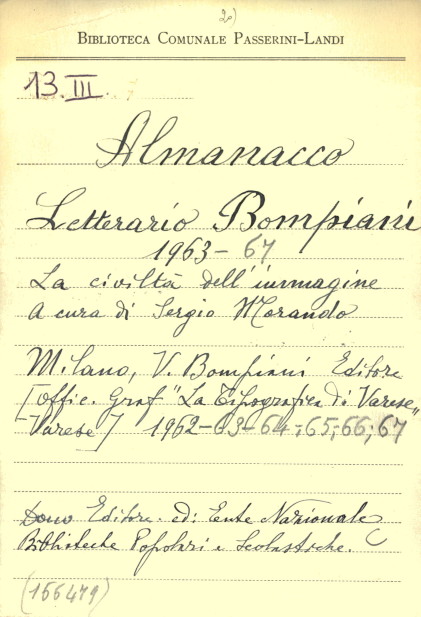 2)
BIBLIOTECA COMUNALE PASSERINI-LANDI
13. III.
Almanacco
Letterario Bompiani
1963-67
La civiltà dell'immagine
a cura di Sergio Morando
Milano, V. Bompiani Editore
[Offic. Graf "La Tipografica di Varese"
Varese] 1962-63-64-;65;66;67
Dono Editore. ed: Ente Nazionale
Biblioteche Popolari e Scolastiche. C
(156479)